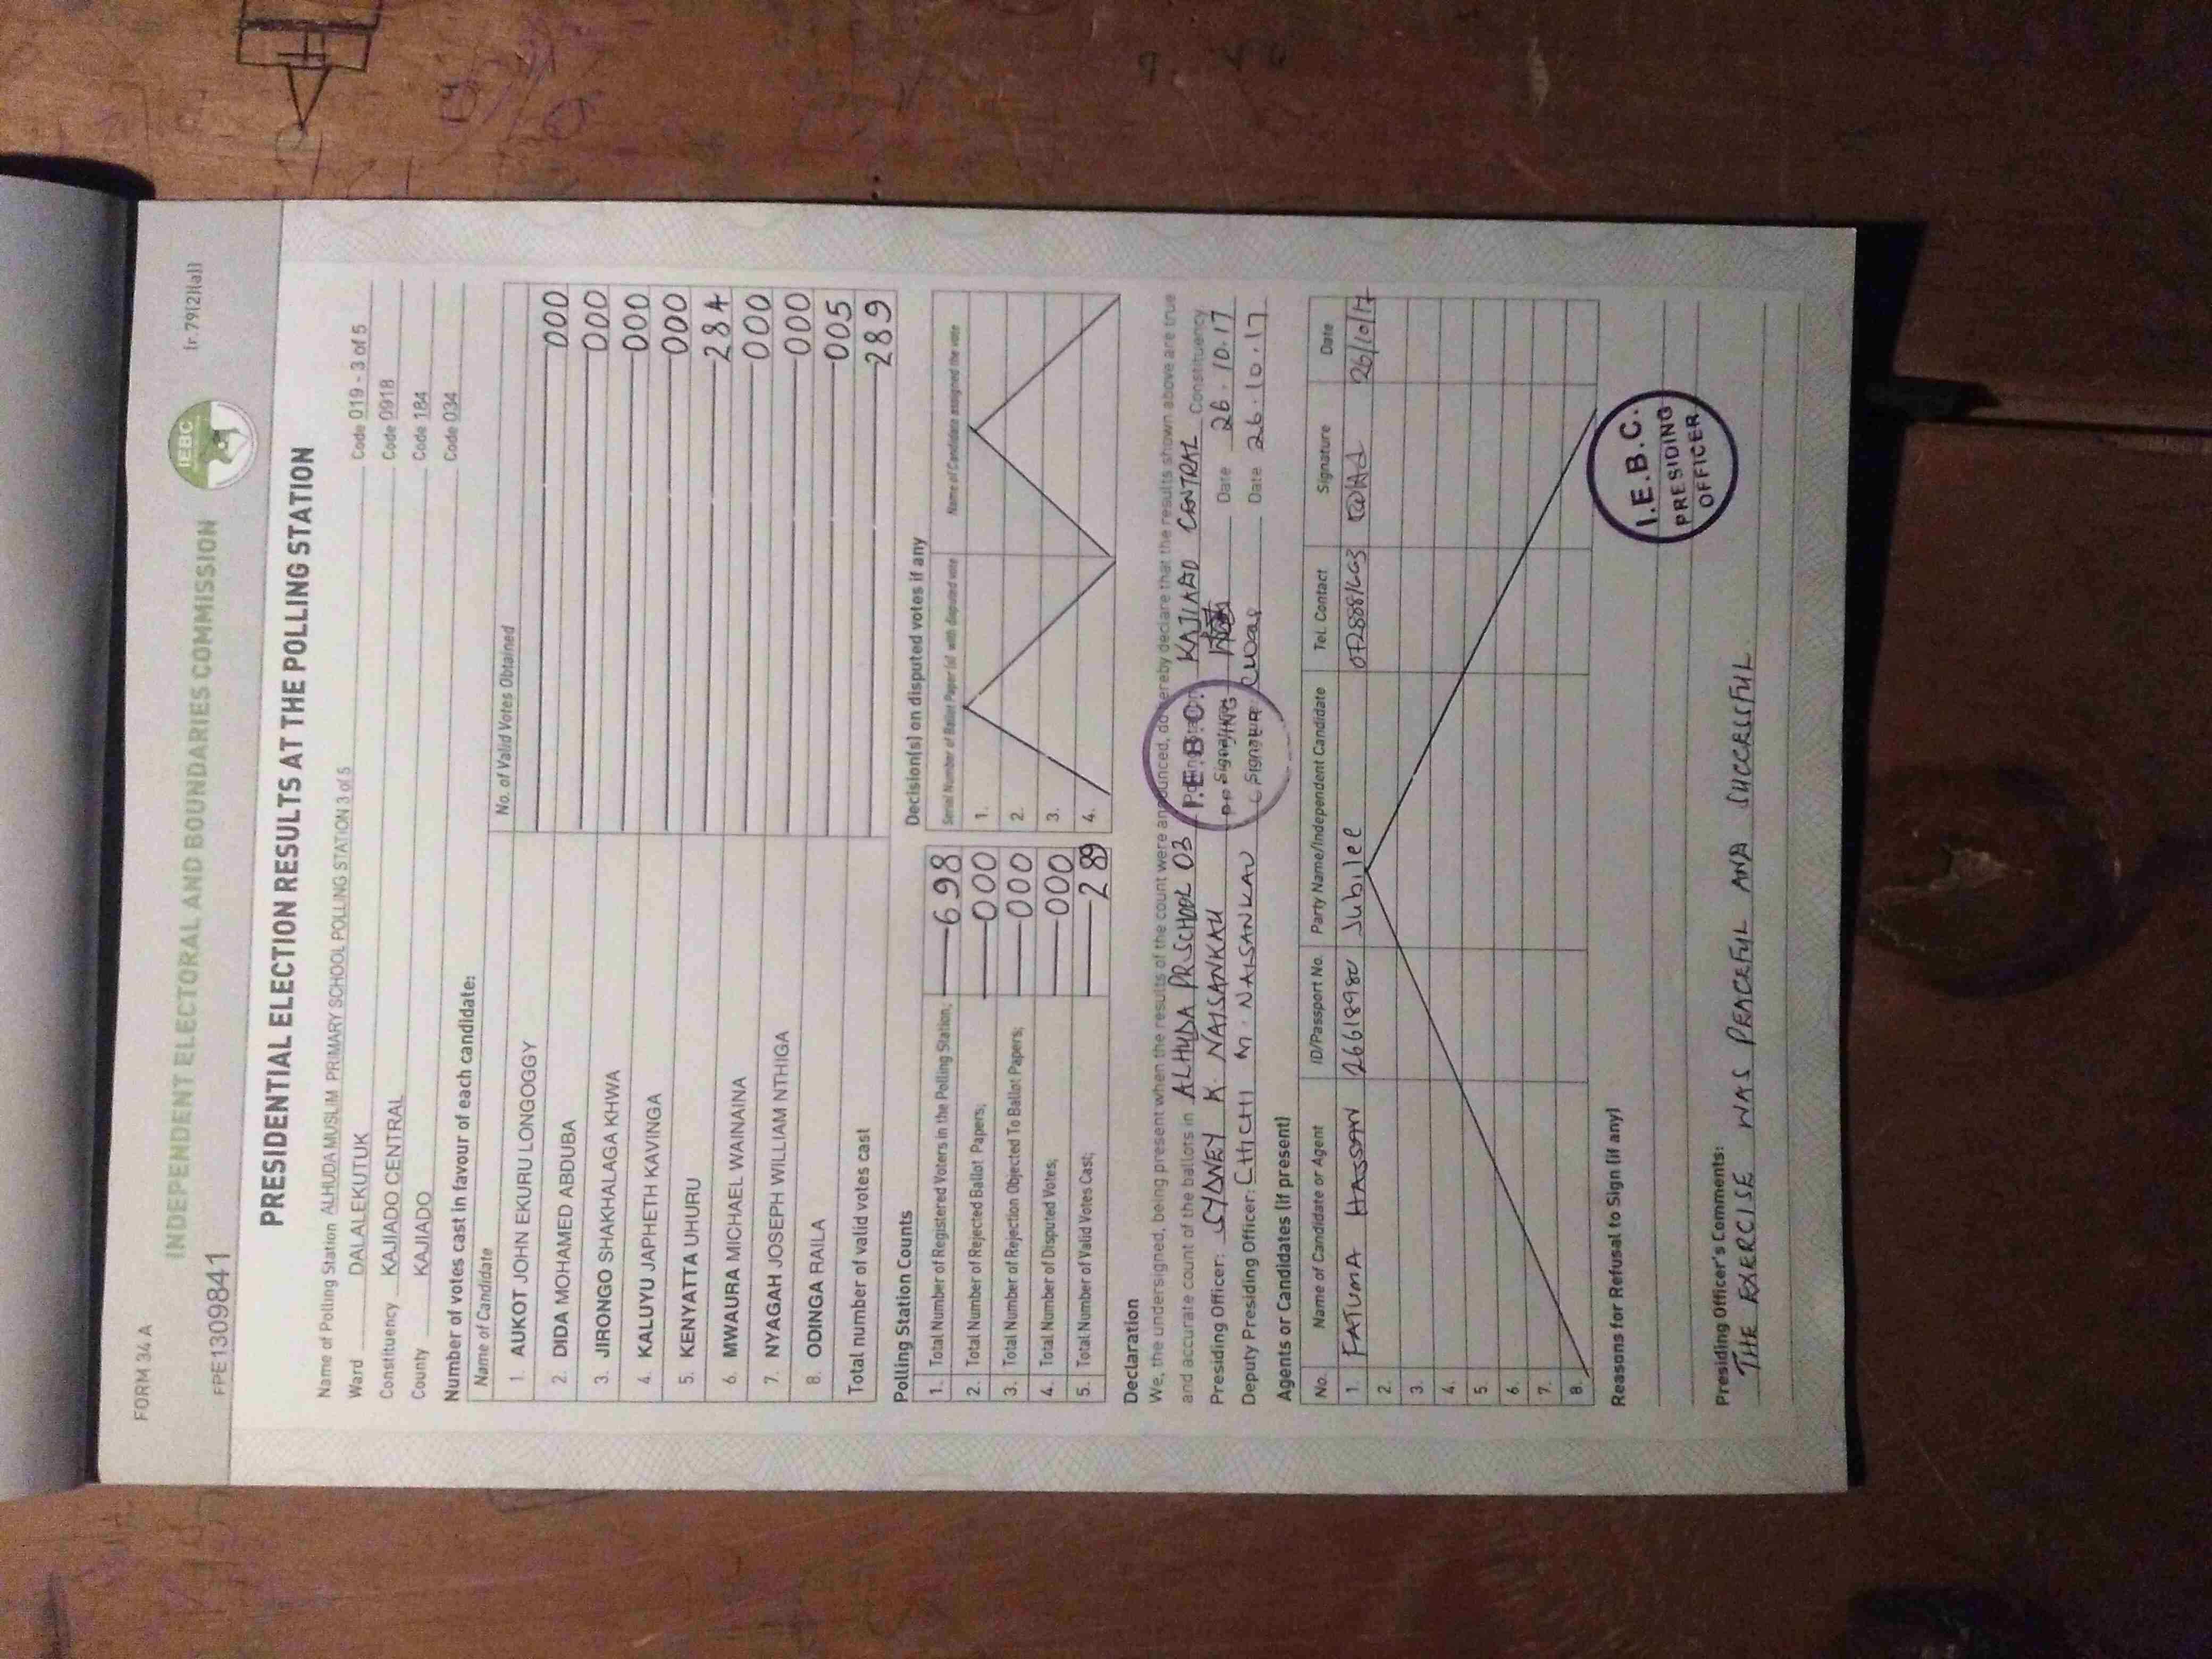 FORM 34 A
(r.79(2)(a))
IEBC
INDEPENDENT ELECTORAL AND BOUNDARIES COMMISSION
FPE1309841
PRESIDENTIAL ELECTION RESULTS AT THE POLLING STATION
Name of Polling Station ALHUDA MUSLIM PRIMARY SCHOOL POLLING STATION 3 of 5 Code 019 - 3 of 5
Ward DALALEKUTUK Code 0918
Constituency KAJIADO CENTRAL Code 184
County KAJIADO Code 034
Number of votes cast in favour of each candidate:
Name of Candidate No. of Valid Votes Obtained
1. AUKOT JOHN EKURU LONGOGGY 000
2. DIDA MOHAMED ABDUBA 000
3. JIRONGO SHAKHALAGA KHWA 000
4. KALUYU JAPHETH KAVINGA 000
5. KENYATTA UHURU 284
6. MWAURA MICHAEL WAINAINA 000
7. NYAGAH JOSEPH WILLIAM NTHIGA 000
8. ODINGA RAILA 005
Total number of valid votes cast 289
Polling Station Counts
1. Total Number of Registered Voters in the Polling Station; 698
2. Total Number of Rejected Ballot Papers; 000
3. Total Number of Rejection Objected To Ballot Papers; 000
4. Total Number of Disputed Votes; 000
5. Total Number of Valid Votes Cast; 289
Decision(s) on disputed votes if any
Serial Number of Ballot Paper (s) with disputed vote Name of Candidate assigned the vote
1.
2.
3.
4.
Declaration
We, the undersigned, being present when the results of the count were announced, do hereby declare that the results shown above are true
and accurate count of the ballots in ALHUDA PR SCHOOL 03 Polling Station KAJIADO CENTRAL Constituency
Presiding Officer: SYDNEY K. NAISANKAU Signature Date 26.10.17
Deputy Presiding Officer: CHICHI M. NAISANKAU Signature Date 26.10.17
I.E.B.C.
PRESIDING
Agents or Candidates (if present)
No. Name of Candidate or Agent ID/Passport No. Party Name/Independent Candidate Tel. Contact Signature Date
1. FATUMA HASSAN Jubilee 26/10/17
2.
3.
4.
5.
6.
7.
8.
Reasons for Refusal to Sign (if any)
I.E.B.C.
PRESIDING
OFFICER
Presiding Officer's Comments:
THE EXERCISE WAS PEACEFUL AND SUCCESSFUL.